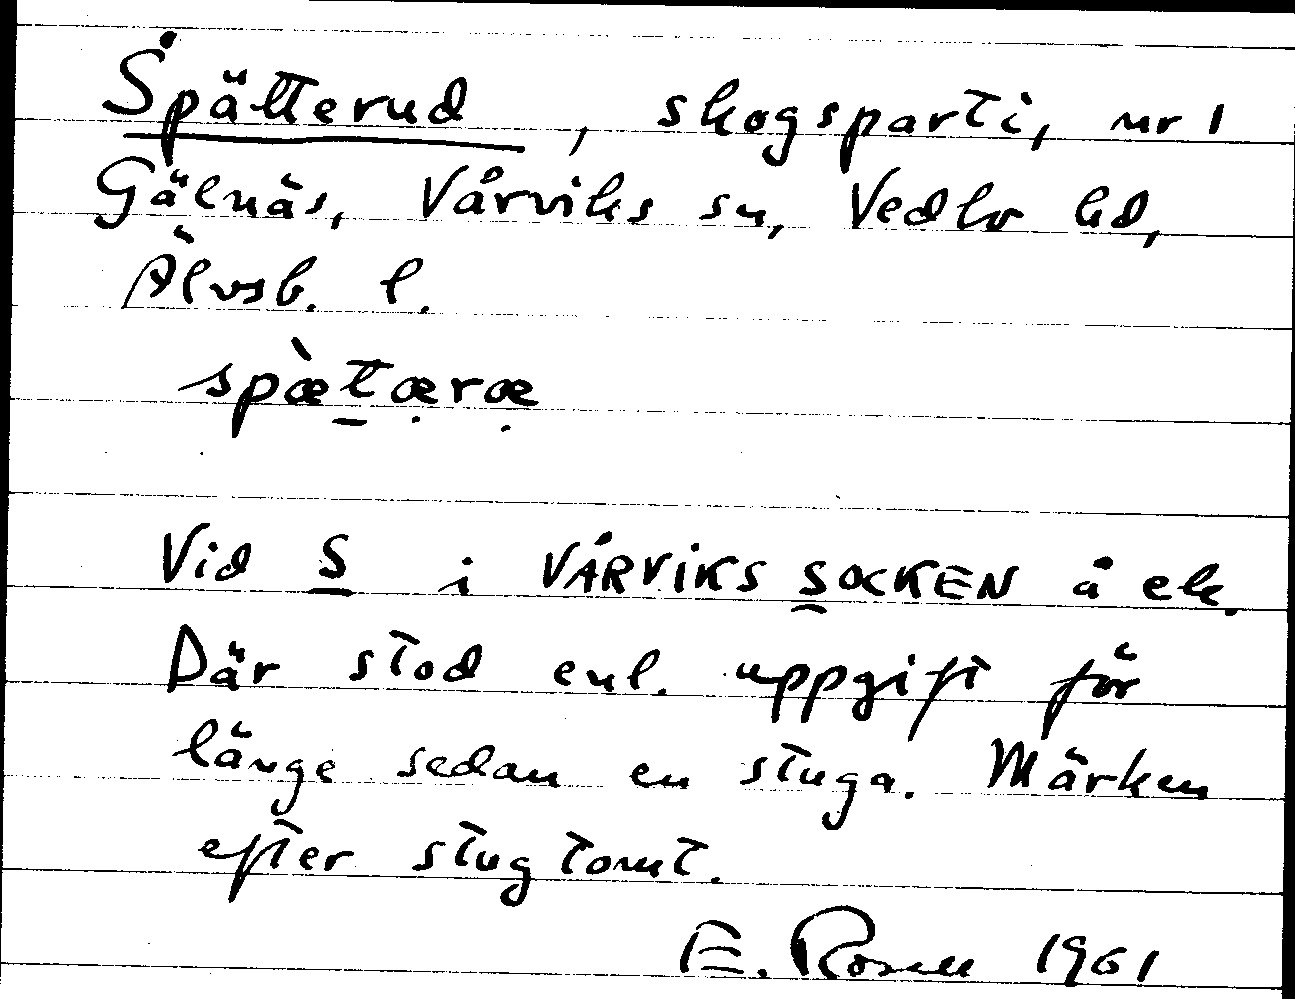 Spätterud, skogsparti, nr 1
Gälnäs, Vårviks sn, Vedbo hd,
Älvsb. l.
spæ̀t̲æ̣ræ̣
Vid S i VÅRVIKS SOCKEN å ek.
Där stod enl. uppgift för
länge sedan en stuga. Märken
efter stugtomt.
E. Rosell 1961